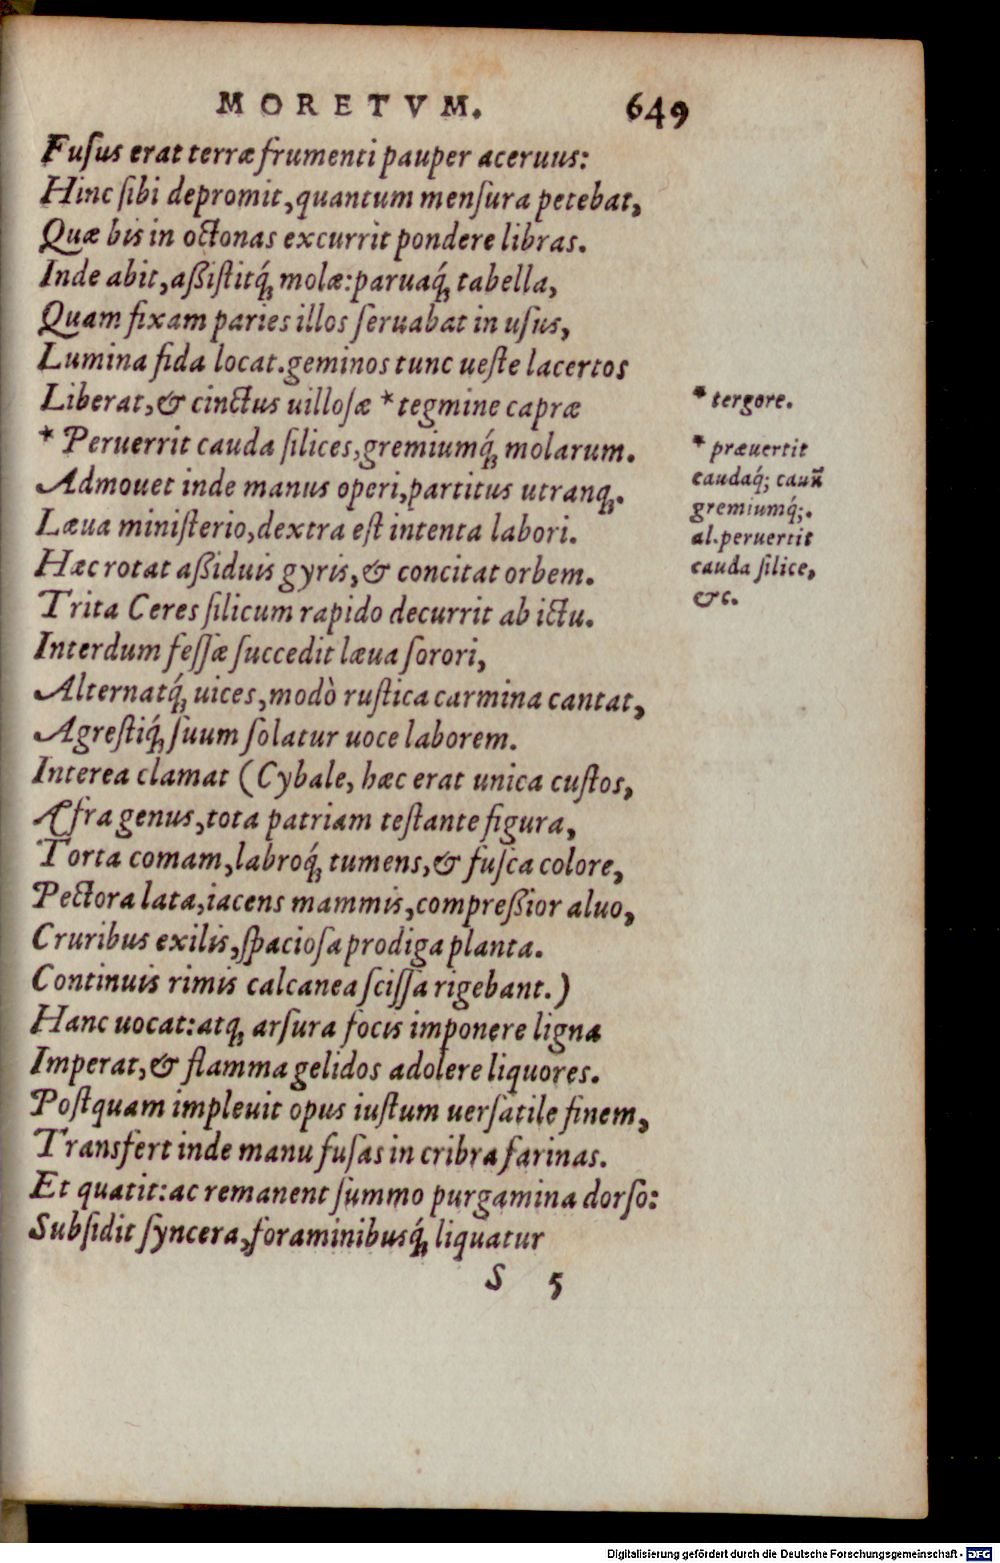 MORETVM. 649
Fuſus erat terræ frumenti pauper aceruus:
Hinc ſibi depromit, quantum menſura petebat,
Quæ bis in octonas excurrit pondere libras.
Inde abit, aßiſtitq́ꝫ molæ: paruaq́ꝫ tabella,
Quam fixam paries illos ſeruabat in uſus,
Lumina fida locat. geminos tunc ueſte lacertos
Liberat, & cinctus uilloſæ * tegmine capræ
* Peruerrit cauda ſilices, gremiumq́ꝫ molarum.
Admouet inde manus operi, partitus utranqꝫ.
Læua miniſterio, dextra eſt intenta labori.
Hæc rotat aßiduis gyris, & concitat orbem.
Trita Ceres ſilicum rapido decurrit ab ictu.
Interdum feſſæ ſuccedit læua ſorori,
Alternatq́ꝫ uices, modò ruſtica carmina cantat,
Agreſtiq́ꝫ ſuum ſolatur uoce laborem.
Interea clamat (Cybale, hæc erat unica cuſtos,
Afra genus, tota patriam teſtante figura,
Torta comam, labroq́ꝫ tumens, & fuſca colore,
Pectora lata, iacens mammis, compreßior aluo,
Cruribus exilis, ſpacioſa prodiga planta.
Continuis rimis calcanea ſciſſa rigebant.)
Hanc uocat: atqꝫ arſura focis imponere ligna
Imperat, & flamma gelidos adolere liquores.
Poſtquam impleuit opus iuſtum uerſatile finem,
Transfert inde manu fuſas in cribra farinas.
Et quatit: ac remanent ſummo purgamina dorſo:
Subſidit ſyncera, foraminibusq́ꝫ liquatur
S 5
* tergore.
* præuertit
caudaq́; 
gremiumq́;.
al. peruertit
cauda ſilice,
&c.
Digitalisierung gefördert durch die Deutsche Forschungsgemeinschaft - DFG